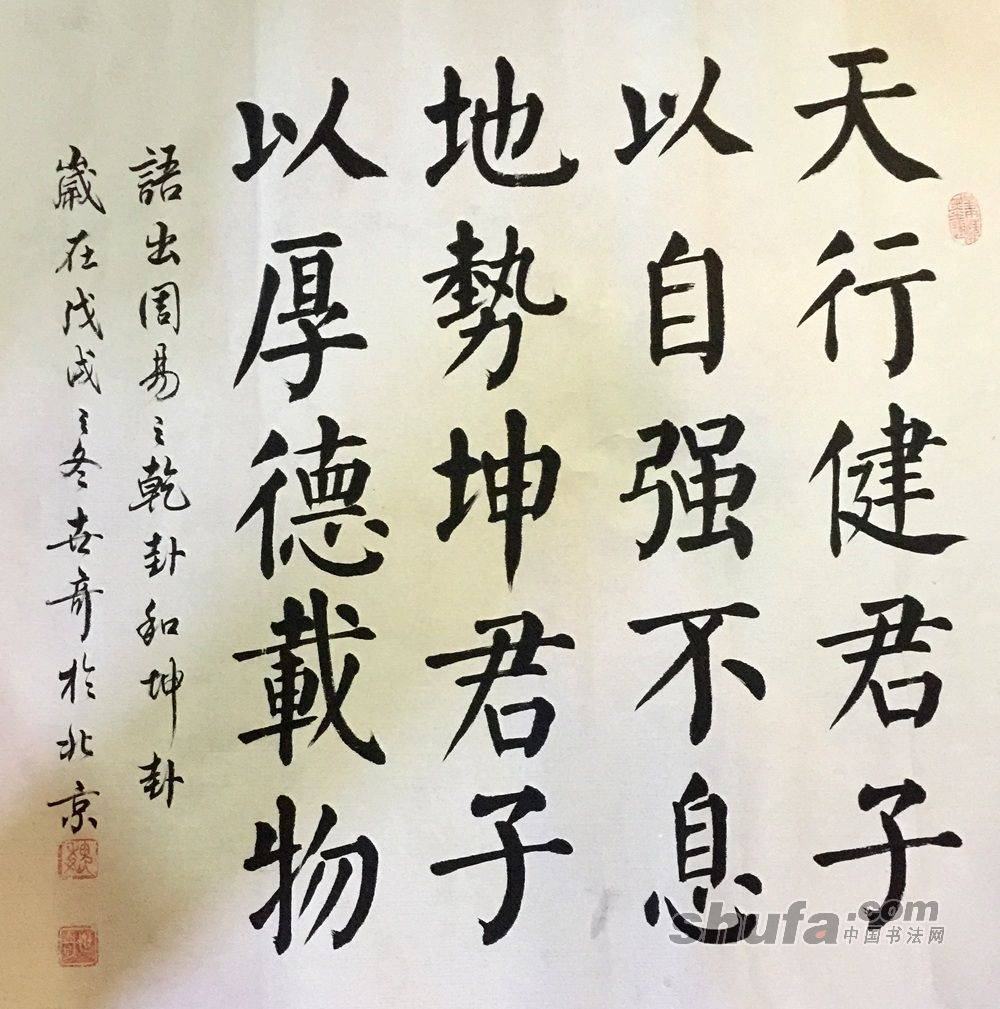 天行健君子
以自强不息
地勢坤君子
以厚德載物
語出周易之乾卦和坤卦
歲在戊戌之冬世奇於北京
shufa.com
中国书法网